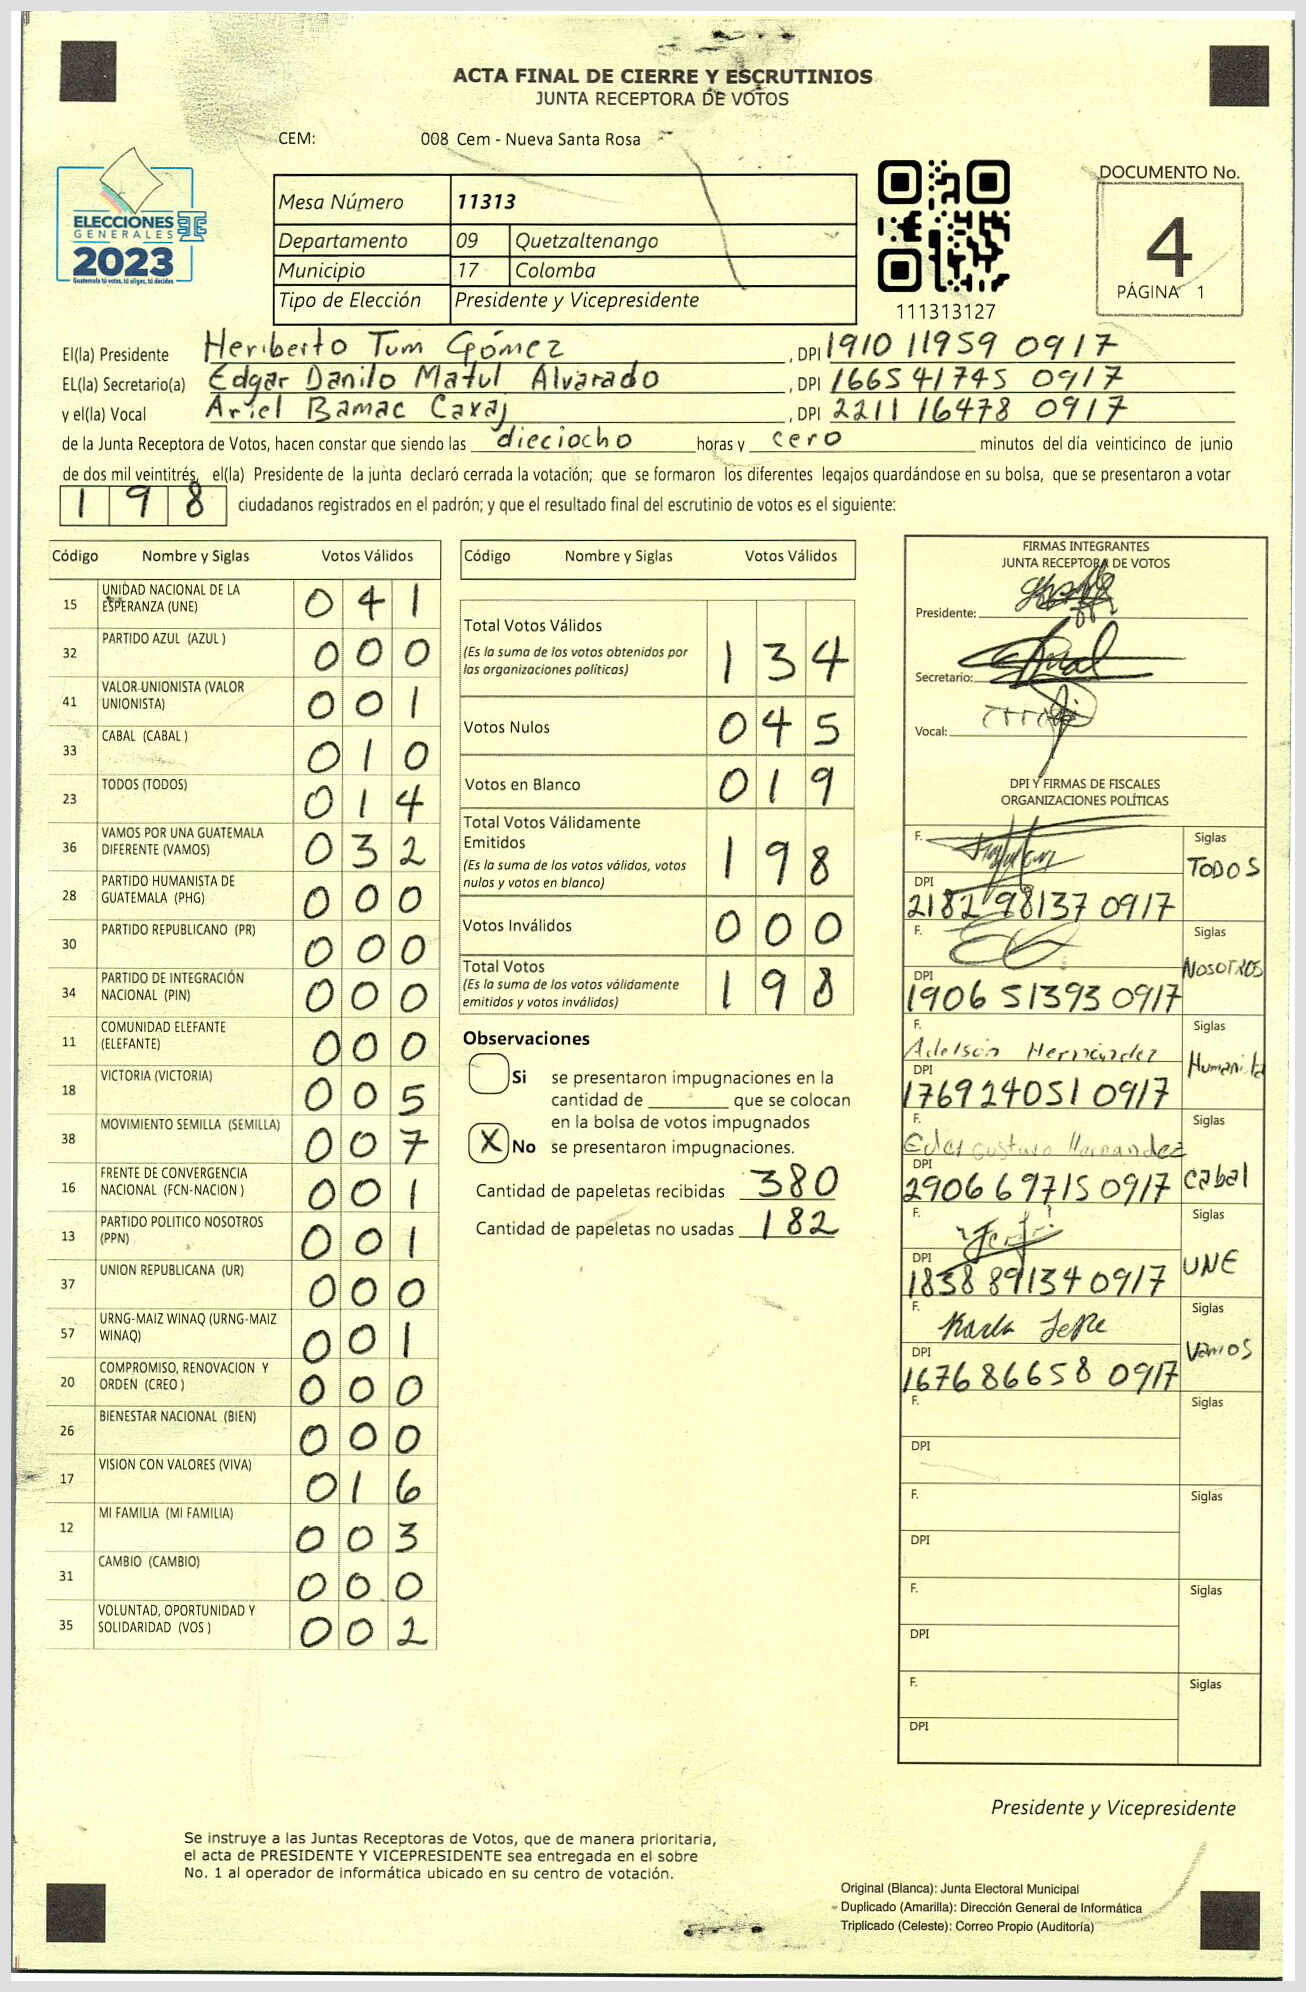 ACTA FINAL DE CIERRE Y ESCRUTINIOS
JUNTA RECEPTORA DE VOTOS
CEM: 008 Cem - Nueva Santa Rosa
ELECCIONES
GENERALES
2023
Guatemala tú votas, tú eliges, tú decides
Mesa Número 11313
Departamento 09 Quetzaltenango
Municipio 17 Colomba
Tipo de Elección Presidente y Vicepresidente
111313127
DOCUMENTO No.
4
PÁGINA 1
El(la) Presidente Heriberto Tum Gómez, DPI 1910 11959 0917
EL(la) Secretario(a) Edgar Danilo Matul Alvarado, DPI 166541745 0917
y el(la) Vocal Ariel Bamac Caxaj, DPI 2211 16478 0917
de la Junta Receptora de Votos, hacen constar que siendo las dieciocho horas y cero minutos del día veinticinco de junio
de dos mil veintitrés, el(la) Presidente de la junta declaró cerrada la votación; que se formaron los diferentes legajos guardándose en su bolsa, que se presentaron a votar
198 ciudadanos registrados en el padrón; y que el resultado final del escrutinio de votos es el siguiente:
Código Nombre y Siglas Votos Válidos
15 UNIDAD NACIONAL DE LA ESPERANZA (UNE) 041
32 PARTIDO AZUL (AZUL ) 000
41 VALOR UNIONISTA (VALOR UNIONISTA) 001
33 CABAL (CABAL ) 010
23 TODOS (TODOS) 014
36 VAMOS POR UNA GUATEMALA DIFERENTE (VAMOS) 032
28 PARTIDO HUMANISTA DE GUATEMALA (PHG) 000
30 PARTIDO REPUBLICANO (PR) 000
34 PARTIDO DE INTEGRACIÓN NACIONAL (PIN) 000
11 COMUNIDAD ELEFANTE (ELEFANTE) 000
18 VICTORIA (VICTORIA) 005
38 MOVIMIENTO SEMILLA (SEMILLA) 007
16 FRENTE DE CONVERGENCIA NACIONAL (FCN-NACION ) 001
13 PARTIDO POLITICO NOSOTROS (PPN) 001
37 UNION REPUBLICANA (UR) 000
57 URNG-MAIZ WINAQ (URNG-MAIZ WINAQ) 001
20 COMPROMISO, RENOVACION Y ORDEN (CREO ) 000
26 BIENESTAR NACIONAL (BIEN) 000
17 VISION CON VALORES (VIVA) 016
12 MI FAMILIA (MI FAMILIA) 003
31 CAMBIO (CAMBIO) 000
35 VOLUNTAD, OPORTUNIDAD Y SOLIDARIDAD (VOS ) 002
Código Nombre y Siglas Votos Válidos
Total Votos Válidos 134
(Es la suma de los votos obtenidos por
las organizaciones políticas)
Votos Nulos 045
Votos en Blanco 019
Total Votos Válidamente
Emitidos 198
(Es la suma de los votos válidos, votos
nulos y votos en blanco)
Votos Inválidos 000
Total Votos 198
(Es la suma de los votos válidamente
emitidos y votos inválidos)
Observaciones
Si se presentaron impugnaciones en la
cantidad de ________ que se colocan
en la bolsa de votos impugnados
X No se presentaron impugnaciones.
Cantidad de papeletas recibidas 380
Cantidad de papeletas no usadas 182
FIRMAS INTEGRANTES
JUNTA RECEPTORA DE VOTOS
Presidente:
Secretario:
Vocal:
DPI Y FIRMAS DE FISCALES
ORGANIZACIONES POLÍTICAS
F. Siglas TODOS
DPI 2182 98137 0917
F. Siglas NOSOTROS
DPI 1906 51393 0917
F. Adelson Hernández Siglas Humanista
DPI 176924051 0917
F. Eder Gustavo Hernandez Siglas Cabal
DPI 2906 69715 0917
F. Siglas UNE
DPI 1838 89134 0917
F. Karla Siglas Vamos
DPI 167686658 0917
F. Siglas
DPI
F. Siglas
DPI
F. Siglas
DPI
F. Siglas
DPI
Presidente y Vicepresidente
Se instruye a las Juntas Receptoras de Votos, que de manera prioritaria,
el acta de PRESIDENTE Y VICEPRESIDENTE sea entregada en el sobre
No. 1 al operador de informática ubicado en su centro de votación.
Original (Blanca): Junta Electoral Municipal
Duplicado (Amarilla): Dirección General de Informática
Triplicado (Celeste): Correo Propio (Auditoría)